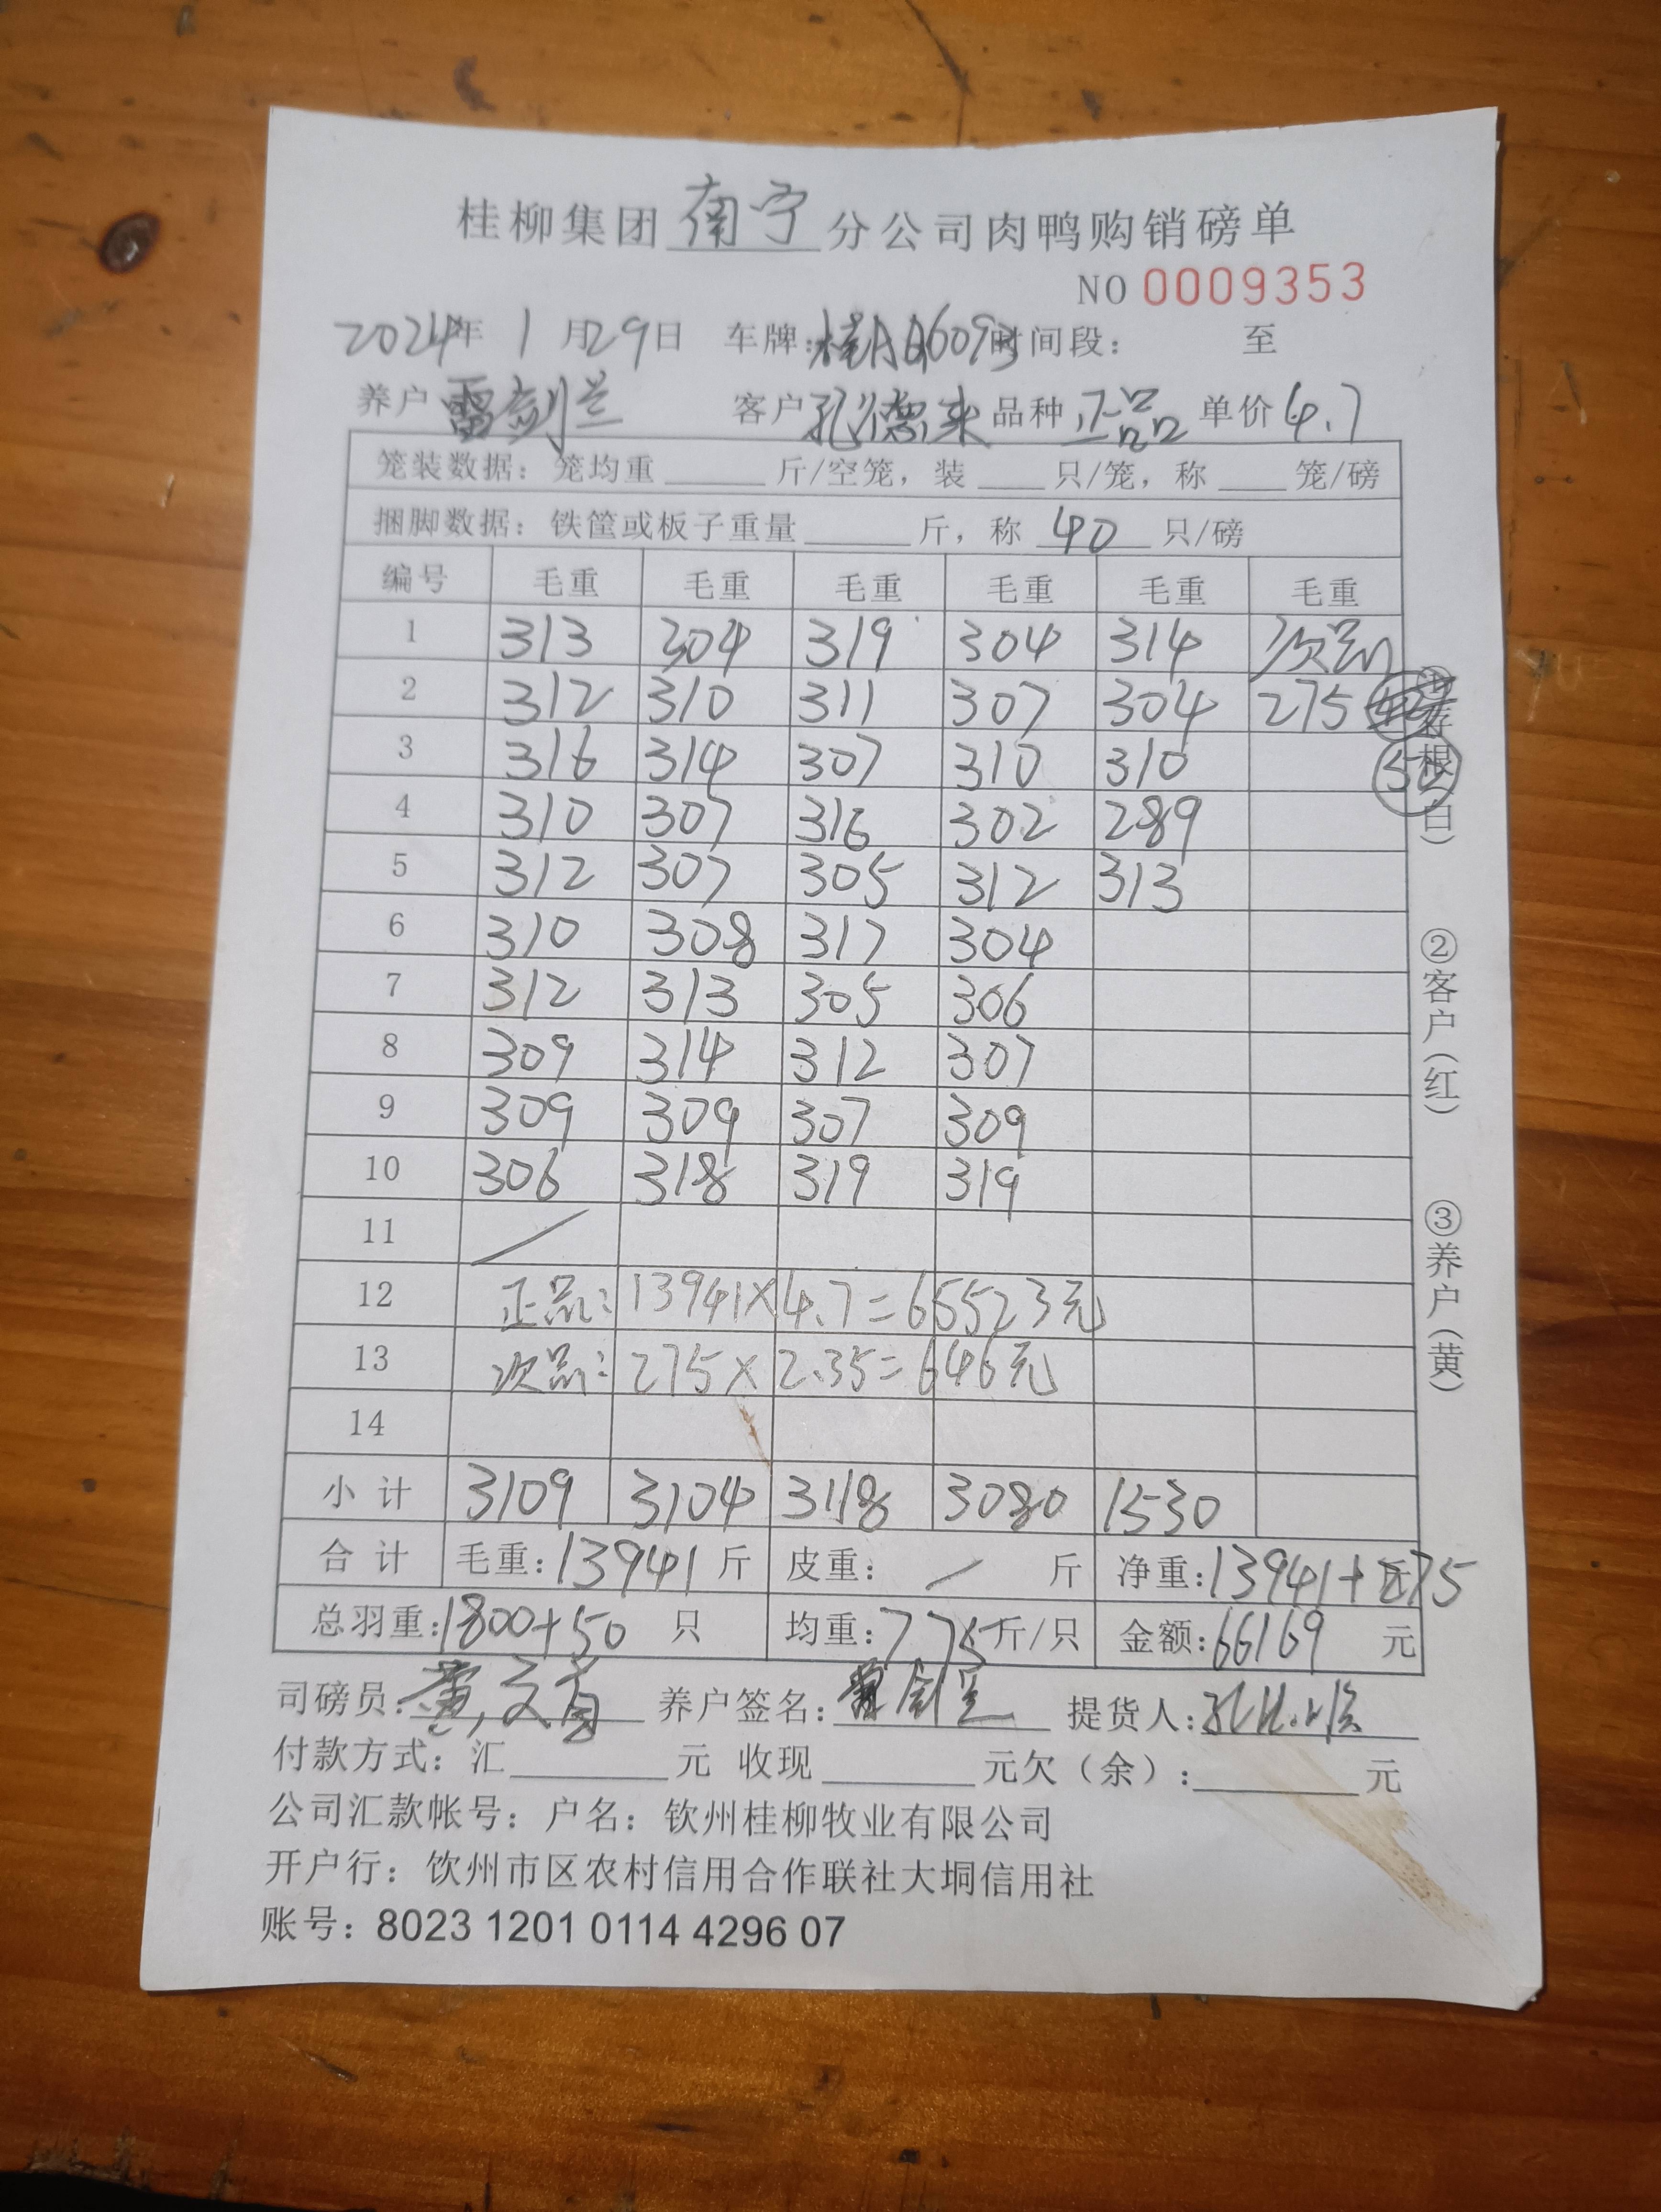 桂柳集团 南宁 分公司肉鸭购销磅单
NO 0009353
2024年 1 月29日 车牌:桂A 时间段: 至
养户 雷剑兰 客户 孔德来 品种 正品 单价 4.7
笼装数据: 笼均重 ____ 斤/空笼, 装 ____ 只/笼, 称 ____ 笼/磅
捆脚数据: 铁筐或板子重量 ____ 斤, 称 40 只/磅
编号 毛重 毛重 毛重 毛重 毛重 毛重
1 313 304 319 304 314 次品
2 312 310 311 307 304 275
3 316 314 307 310 310 50
4 310 307 316 302 289
5 312 307 305 312 313
6 310 308 317 304
7 312 313 305 306
8 309 314 312 307
9 309 309 307 309
10 306 318 319 319
11 /
12 正品: 13941×4.7=65523元
13 次品: 275×2.35=646元
14
小计 3109 3104 3118 3080 1530
合计 毛重:13941斤 皮重: / 斤 净重:13941+275
总羽重:1800+50 只 均重:7.75斤/只 金额:66169 元
司磅员: 养户签名: 提货人:
付款方式: 汇____元 收现____元欠(余):____元
公司汇款帐号: 户名: 钦州桂柳牧业有限公司
开户行: 饮州市区农村信用合作联社大垌信用社
账号: 8023 1201 0114 4296 07
存根(白)
②客户(红)
③养户(黄)